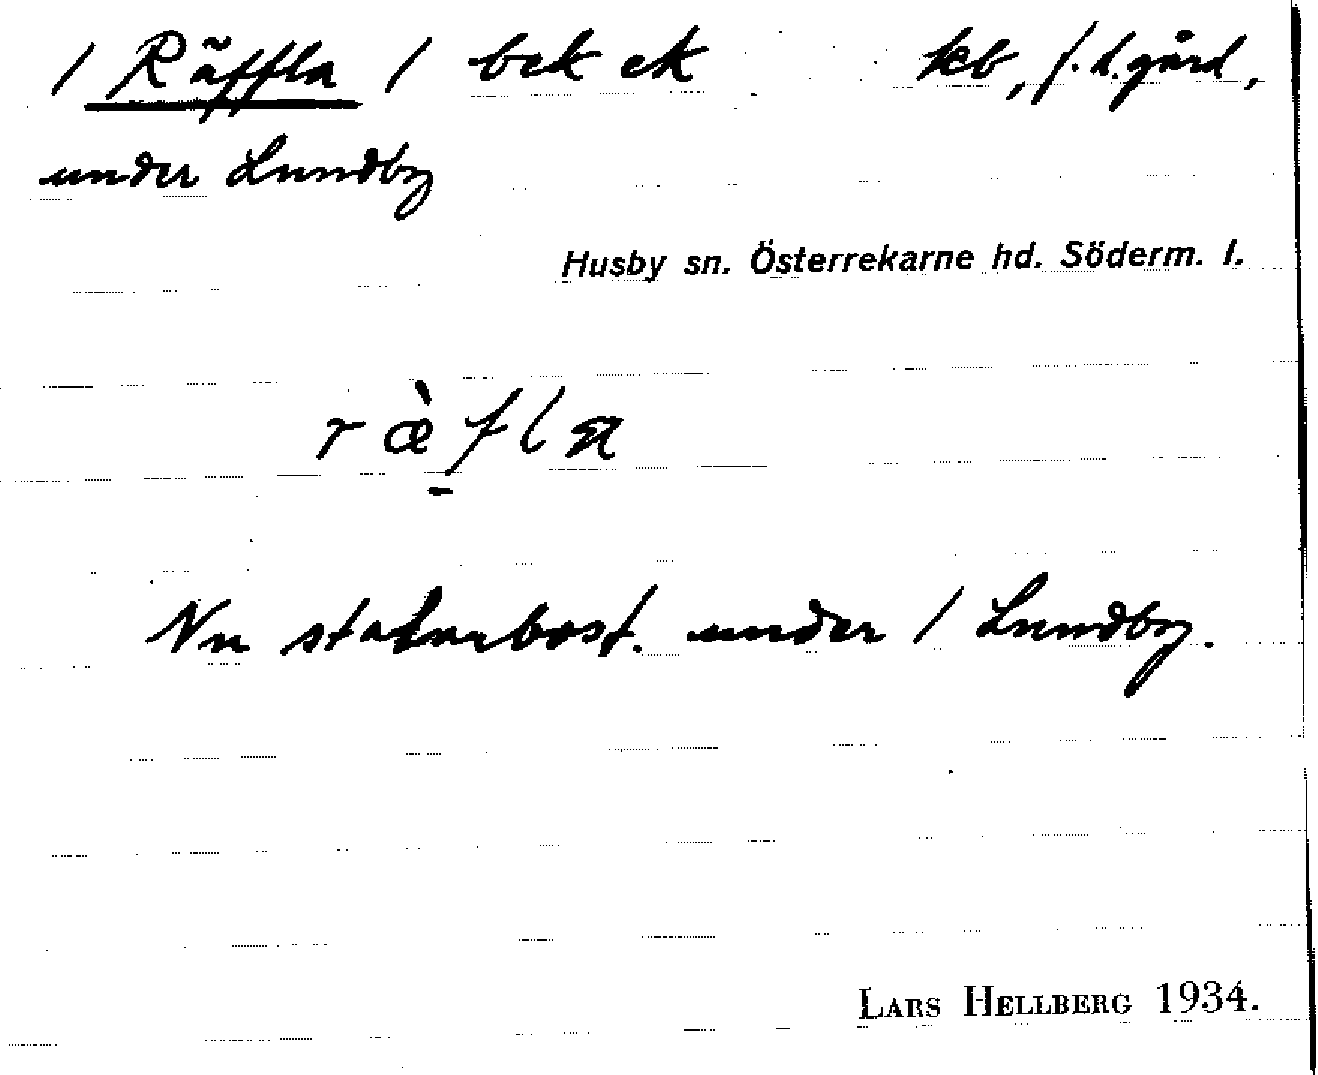 / Räffla / bek ek kb, f.h.gård,
under Lundby
Husby sn. Österrekarne hd. Söderm. l.
ræ̀fla
Nu statarbost. under / Lundby.
LARS HELLBERG 1934.